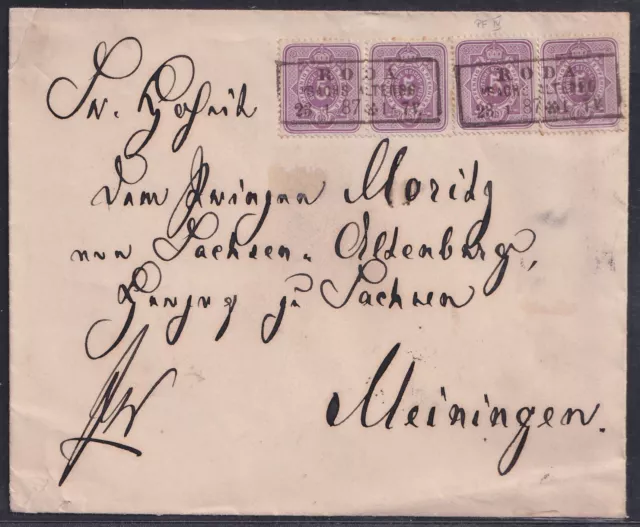 PF IV
RODA
SACHS. ALTENBG.
25 1 87 * 1-
RODA
SACHS. ALTENBG.
25 1 87 * 1-
Sr. Hoheit
dem Prinzen Moritz
von Sachsen-Altenburg,
Herzog zu Sachsen
Meiningen.